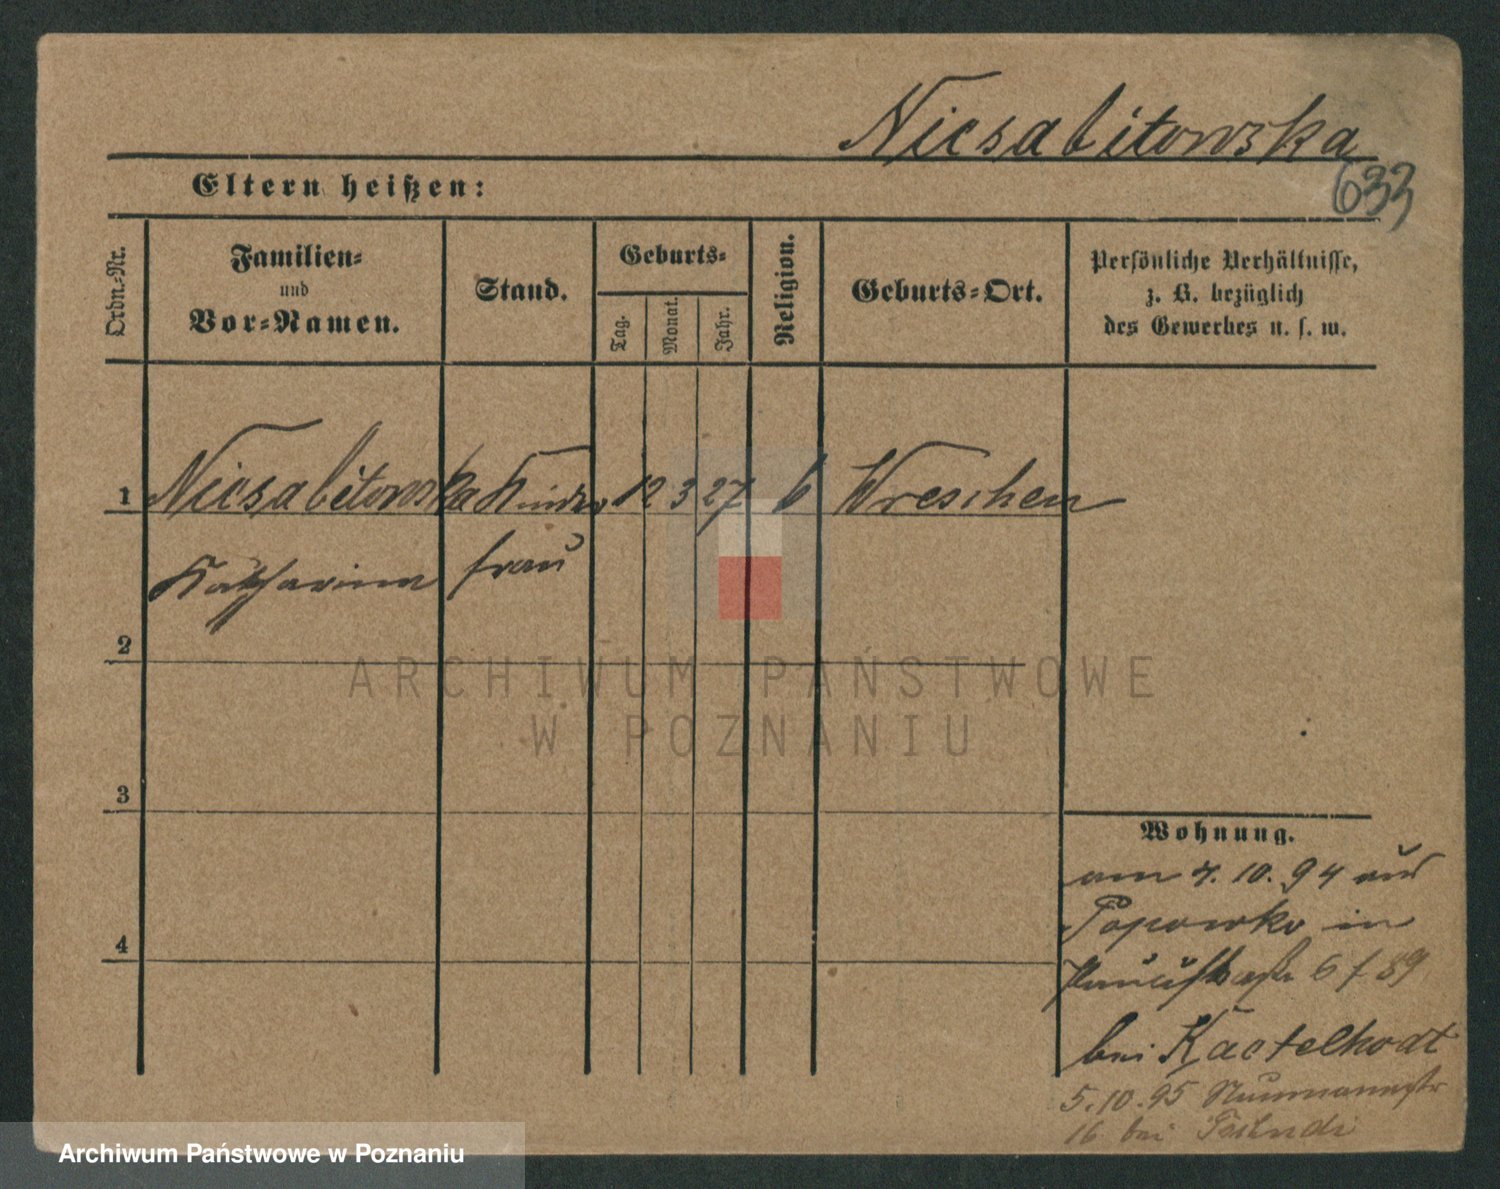 Niesabitowska
633
Eltern heißen:
Ordn.-Nr.
Familien-
und
Vor-Namen.
Stand.
Geburts-
Tag.
Monat.
Jahr.
Religion.
Geburts-Ort.
Persönliche Verhältnisse,
z. B. bezüglich
des Gewerbes u. s. w.
1 Niesabitowska Kinder 12 3 27 Wreschen
Katharina frau
2
3
4
Wohnung.
am 7.10.94 aus
Popowko in
6 / 89
bei
5.10.95 Naumannstr
16 bei
ARCHIWUM PAŃSTWOWE
W POZNANIU
Archiwum Państwowe w Poznaniu